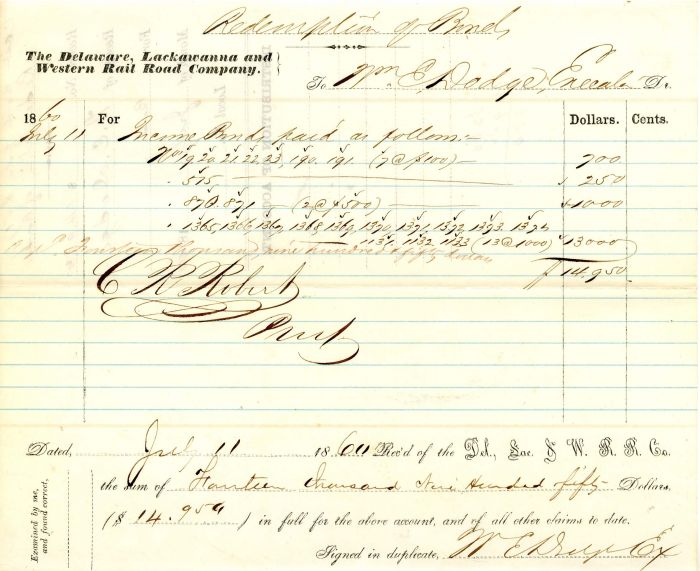 Redemption of Bonds
The Delaware, Lackawanna and
Western Rail Road Company.
To Wm E, Dodge, Dr.
1860 For Dollars. Cents.
July 11 Income Bonds paid as follows:—
No 19, 20, 21, 22, 23, 190, 191. (7 @ $100) — 700
" 515 — " 250
" 870. 871 — (2 @ $500) — " 1000
" 1365, 1366, 1367, 1368, 1369, 1370, 1371, 1372, 1373. 1374
1131, 1132 1133 (13 @ 1000) " 13000
Fourteen Thousand nine hundred fifty dollars
$ 14.950
C R Robert
Prest
Dated, July 11 1860 Rec'd of the Del., Lac. & W. R. R. Co.
the sum of Fourteen Thousand Nine Hundred fifty Dollars,
($ 14.950 ) in full for the above account, and of all other claims to date.
Signed in duplicate, W E Dodge Ex
Examined by me,
and found correct,